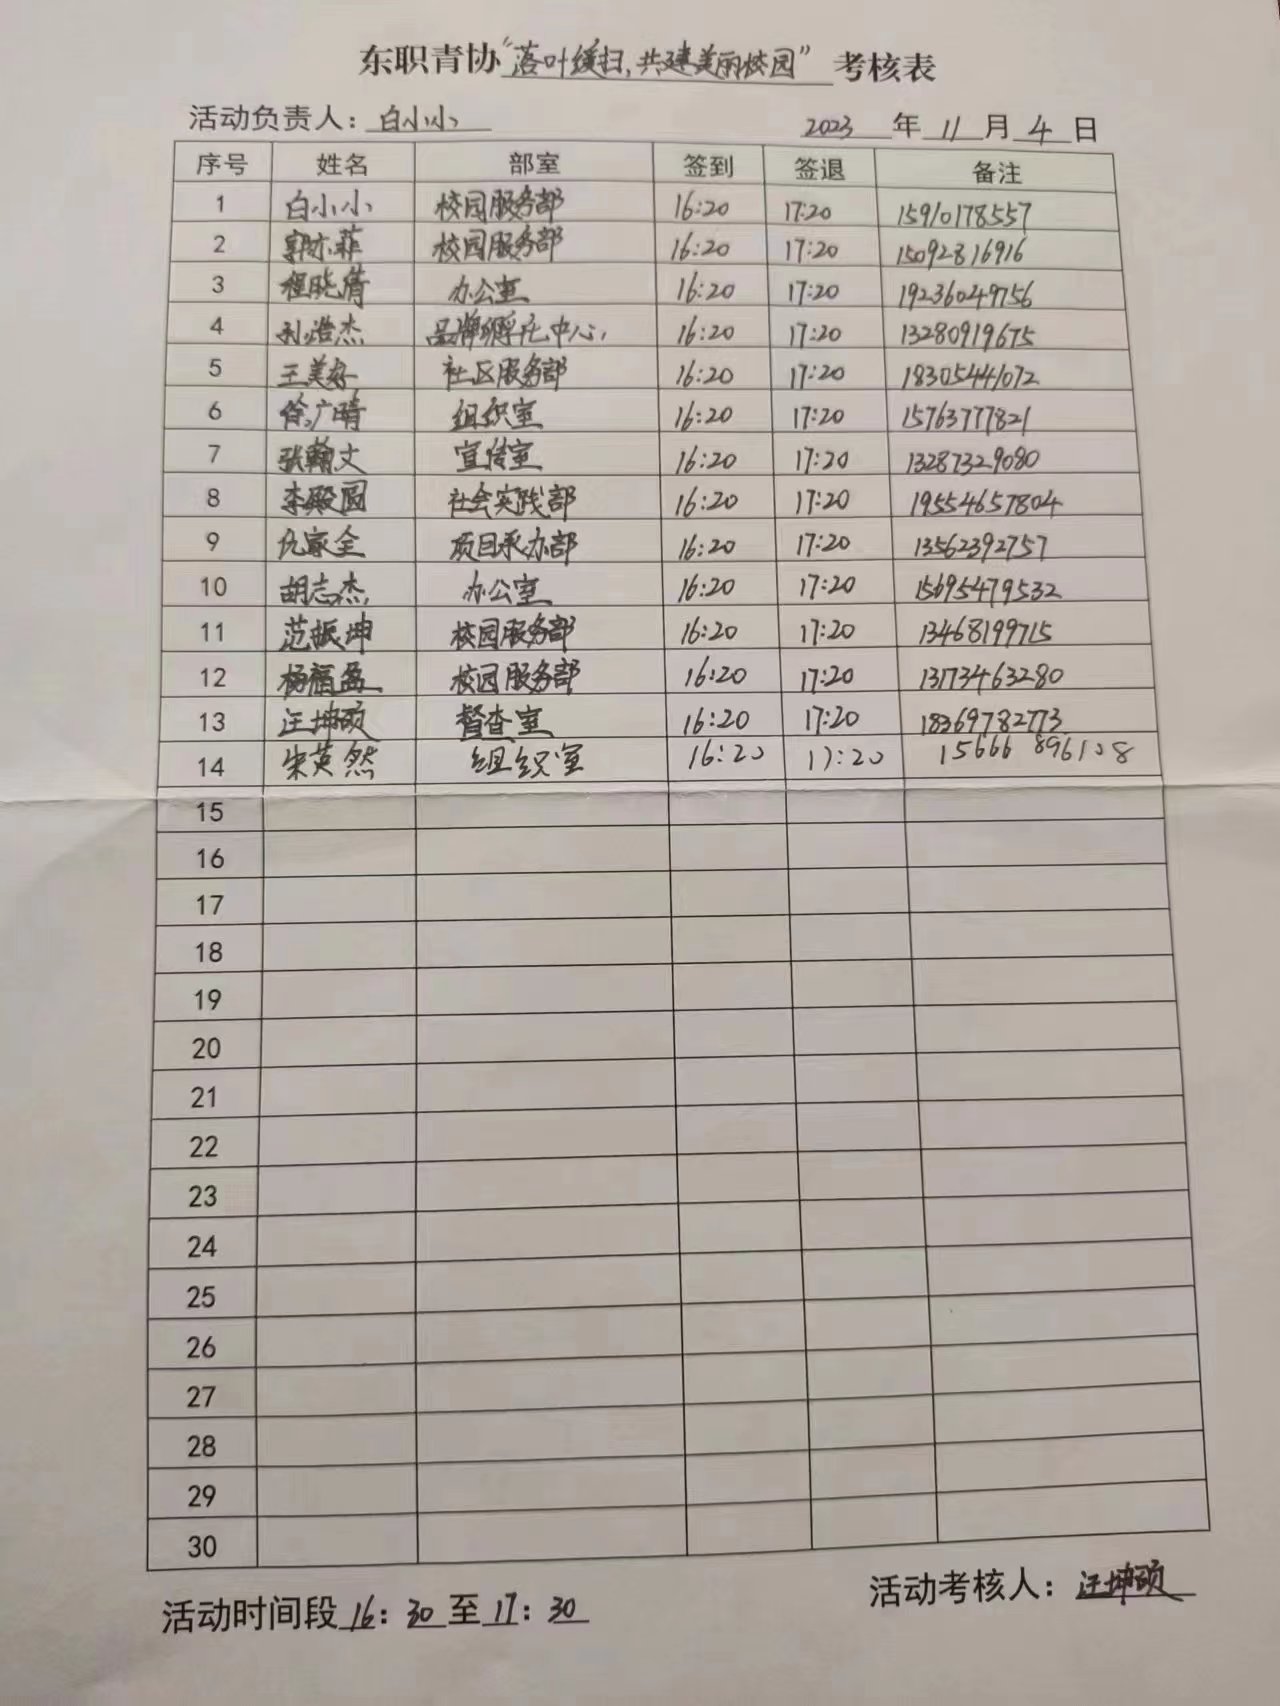 东职青协“落叶缓扫,共建美丽校园”考核表
活动负责人：白小小 2023 年 11 月 4 日
序号 姓名 部室 签到 签退 备注
1 白小小 校园服务部 16:20 17:20 15910178557
2 郭亦菲 校园服务部 16:20 17:20 15092816916
3 程晓倩 办公室 16:20 17:20 19236049756
4 孙浩杰 品牌孵化中心 16:20 17:20 13280919675
5 王美好 社区服务部 16:20 17:20 18305441072
6 徐广晴 组织室 16:20 17:20 15763777821
7 张翰文 宣传室 16:20 17:20 13287329080
8 李殿圆 社会实践部 16:20 17:20 19554657804
9 仇家全 项目承办部 16:20 17:20 13562392757
10 胡志杰 办公室 16:20 17:20 15695479532
11 范振坤 校园服务部 16:20 17:20 13468199715
12 杨福盈 校园服务部 16:20 17:20 13173463280
13 汪坤硕 督查室 16:20 17:20 18369782773
14 朱英然 组织室 16:20 17:20 15666 896108
15
16
17
18
19
20
21
22
23
24
25
26
27
28
29
30
活动时间段 16：30 至 17：30 活动考核人：汪坤硕